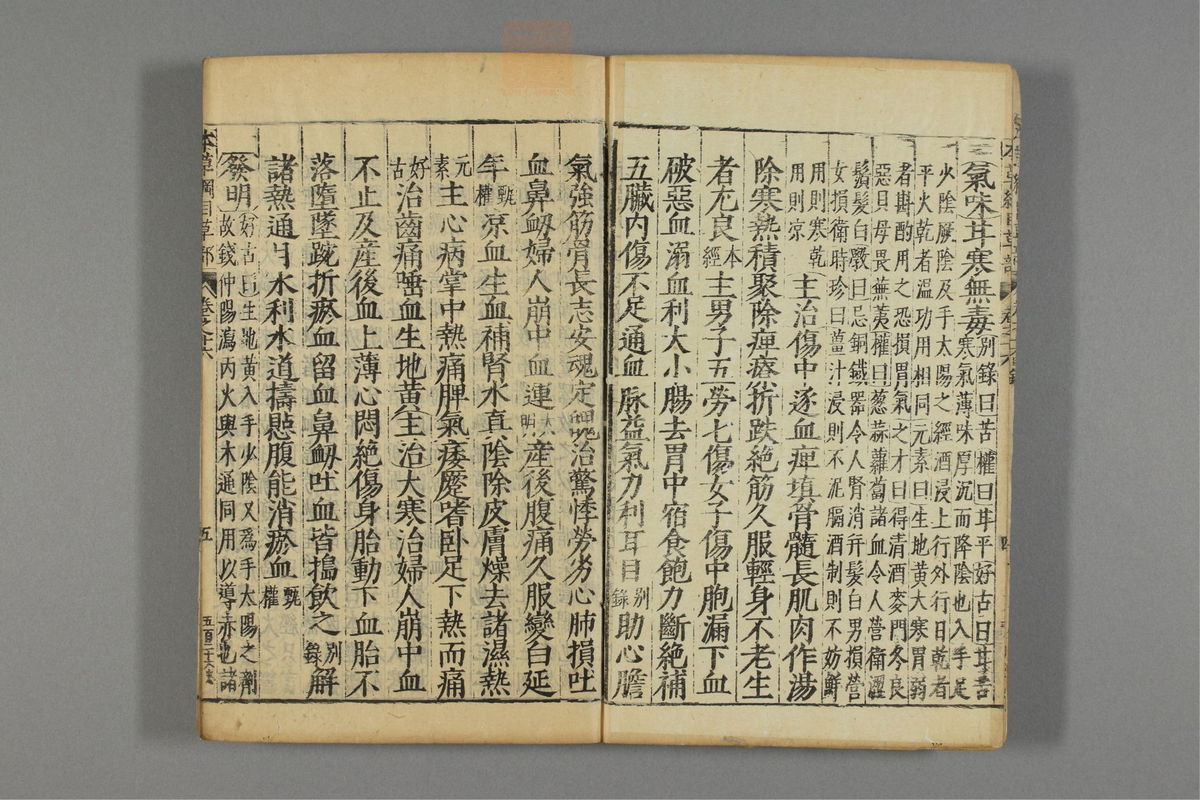 氣味甘寒無毒別錄曰苦權曰甘平好古曰甘苦
寒氣薄味厚沉而降陰也入手足
火陰厥陰及手太陽之經酒浸上行外行日乾者
平火乾者溫功用相同元素曰生地黃大寒胃弱
者斟酌用之恐損胃氣之才曰得清酒麥門冬良
惡貝母畏無荑權曰葱蒜蘿蔔諸血令人營衛澀
鬚髮白斆曰忌銅鐵器令人腎消幷髮白男損營
女損衛時珍曰薑汁浸則不泥膈酒制則不妨鮮
用則寒乾
用則凉
主治傷中逐血痺填骨髓長肌肉作湯
除寒熱積聚除痺療折跌絶筋久服輕身不老生
者尤良本經主男子五勞七傷女子傷中胞漏下血
破惡血溺血利大小腸去胃中宿食飽力斷絶補
五臟內傷不足通血脉益氣力利耳目別錄助心膽
氣強筋骨長志安魂定魄治驚悸勞劣心肺損吐
血鼻衂婦人崩中血運大明産後腹痛久服變白延
年甄權凉血生血補腎水真陰除皮膚燥去諸濕熱
元素主心病掌中熱痛脾氣痿蹙嗜卧足下熱而痛
好古治齒痛唾血生地黃主治大寒治婦人崩中血
不止及産後血上薄心悶絶傷身胎動下血胎不
落墮墜踠折瘀血留血鼻衂吐血皆搗飲之別錄解
諸熱通月水利水道擣慰腹能消瘀血甄權
發明好古曰生地黃入手少陰又爲手太陽之劑
故錢仲陽瀉丙火與木通同用以導赤也諸
本草綱目草部
卷之十六
五